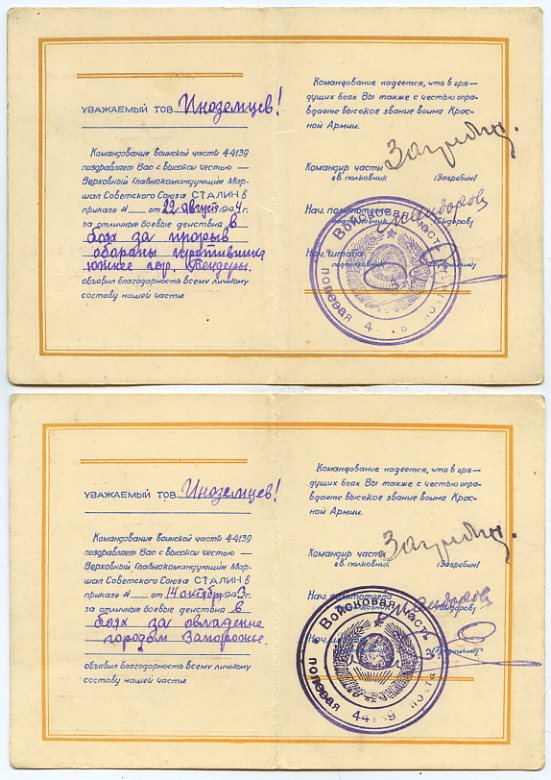 УВАЖАЕМЫЙ ТОВ. Иноземцев!
Командование воинской части 44139
поздравляет Вас с высокой честью —
Верховный Главнокомандующий Мар-
шал Советского Союза СТАЛИН в
приказе № от 22 август 1944 г.
за отличные боевые действия в
боях за прорыв
обороны противника
южнее гор. Бендеры.
объявил благодарность всему личному
составу нашей части.
Командование надеется, что в гря-
дущих боях Вы также с честью опра-
вдаете высокое звание воина Крас-
ной Армии.
Командир части
гв. полковник (Загребин)
Нач. политотдела
Нач. штаба
подполковник
Войсковая часть
полевая почта
УВАЖАЕМЫЙ ТОВ. Иноземцев!
Командование воинской части 44139
поздравляет Вас с высокой честью —
Верховный Главнокомандующий Мар-
шал Советского Союза СТАЛИН в
приказе № от 14 октября 1943 г.
за отличные боевые действия в
боях за овладение
городом Запорожье
объявил благодарность всему личному
составу нашей части
Командование надеется, что в гря-
дущих боях Вы также с честью опра-
вдаете высокое звание воина Крас-
ной Армии.
Командир части
гв. полковник (Загребин)
Войсковая часть
полевая почта